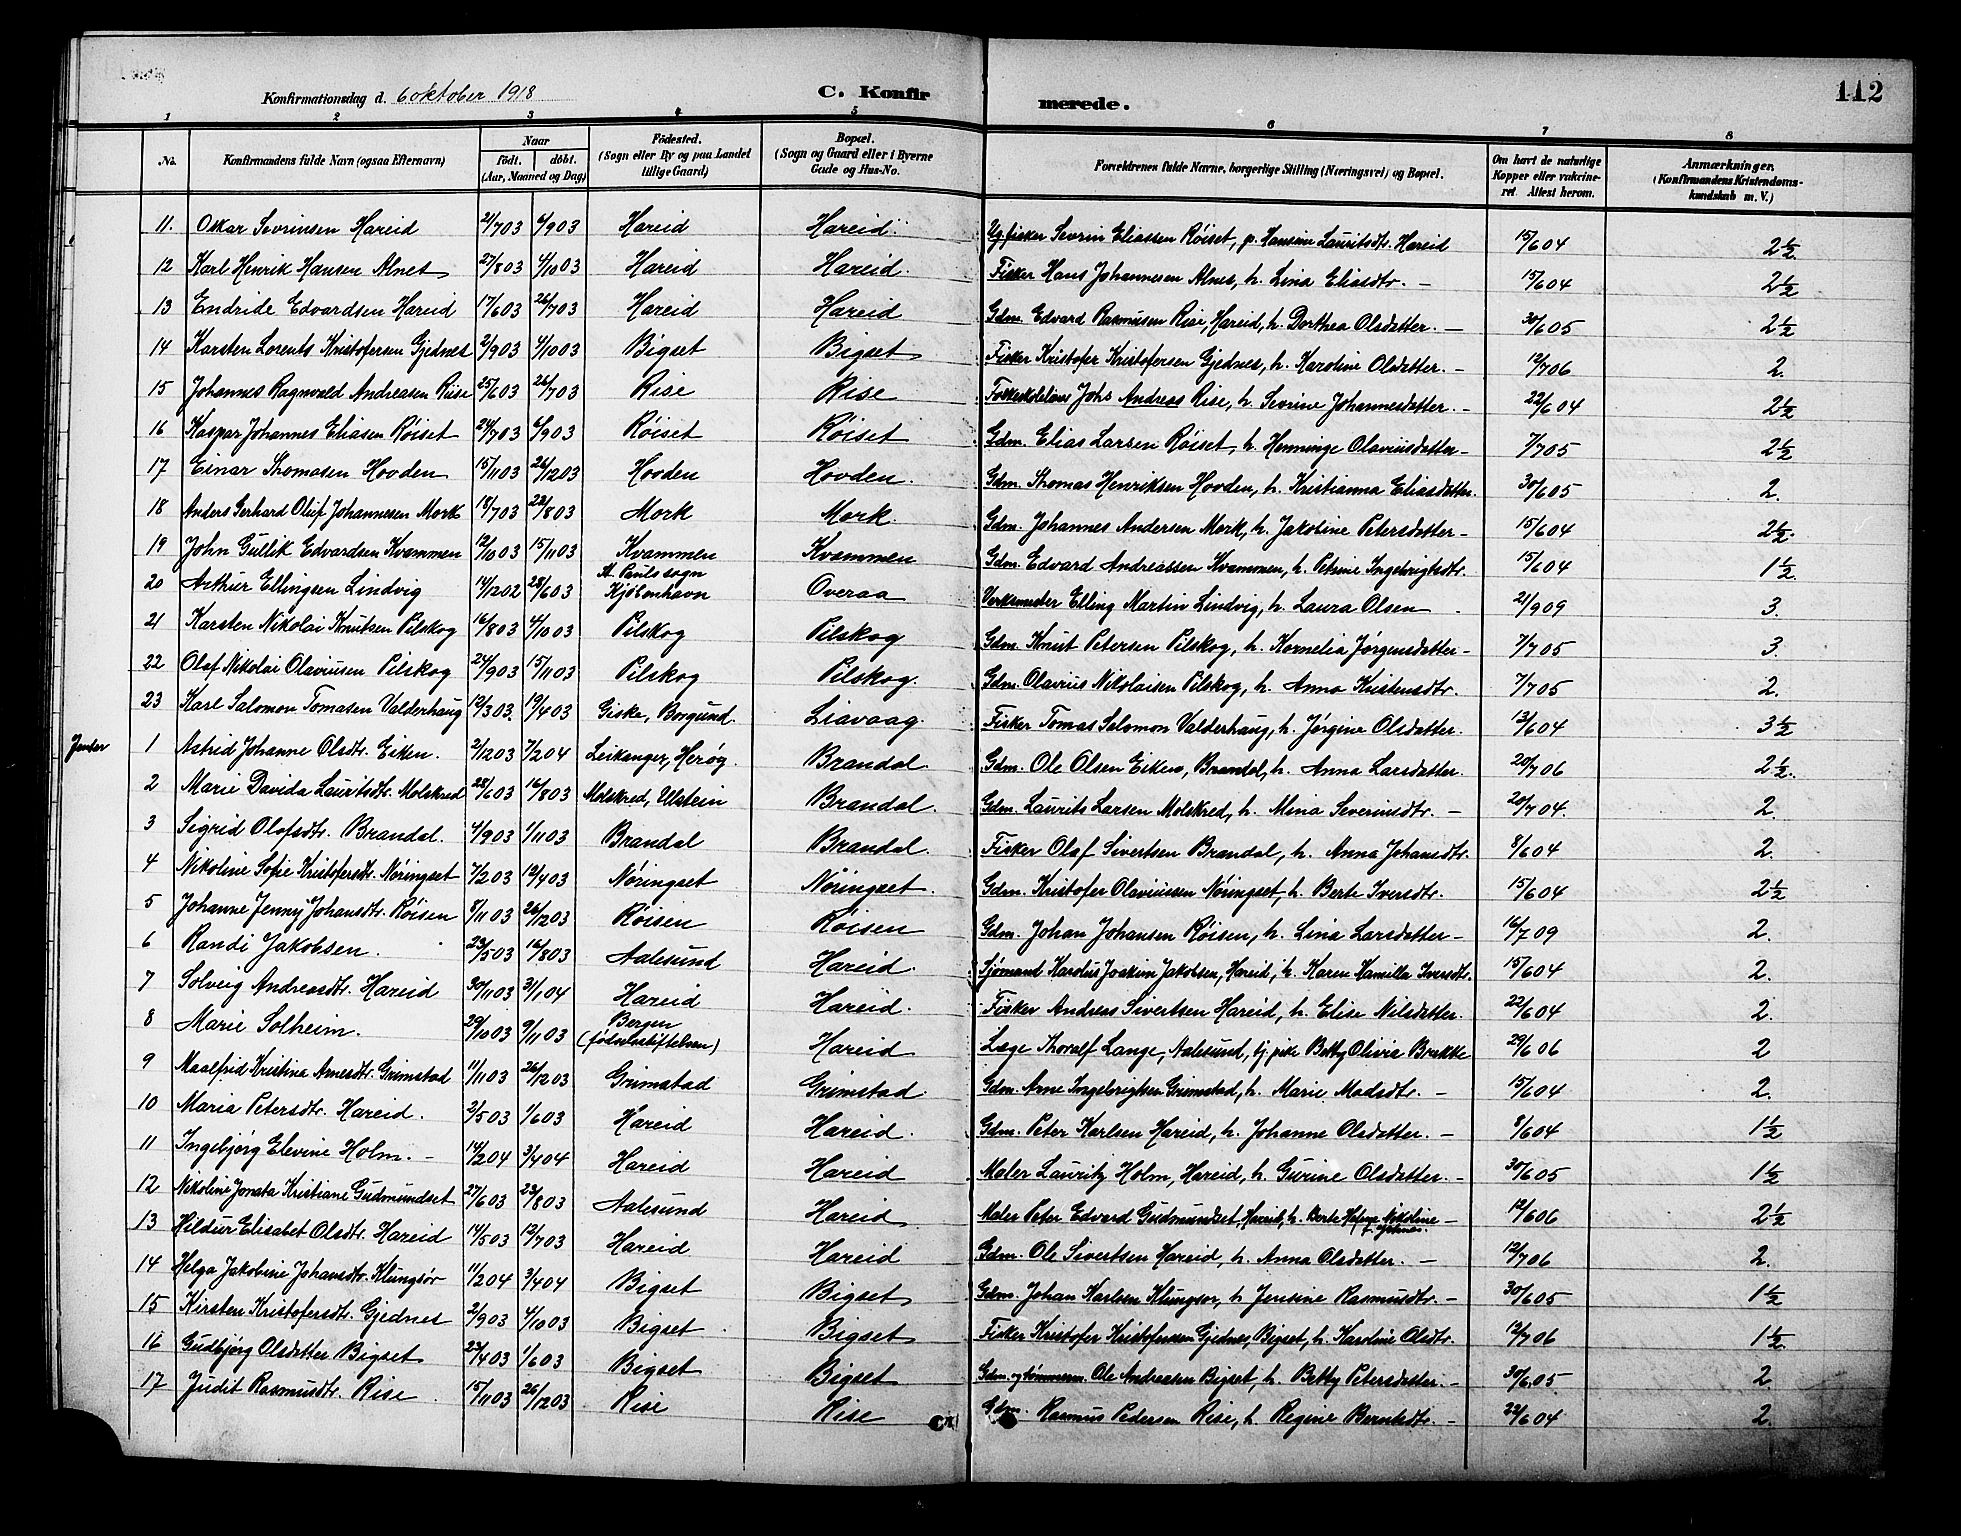 Konfirmationsdag d. 6 oktober 1918 C. Konfirmerede. 112
1 2 3 4 5 6 7 8
No. Konfirmandens fulde Navn (ogsaa Efternavn) Naar født. døbt. (Aar, Maaned og Dag) Fødested. (Sogn eller By og paa Landet tillige Gaard) Bopæl. (Sogn og Gaard eller i Byerne Gade og Hus-No. Forældrenes fulde Navne, borgerlige Stilling (Næringsvei) og Bopæl. Om havt de naturlige Kopper eller vakcineret. Attest herom. Anmærkninger. (Konfirmandens Kristendomskundskab m. V.)
11. Oskar Sevrinsen Hareid 21/703 6/903 Hareid Hareid Ug. fisker Sevrin Eliassen Røiset, p. Hansine Lauritsdtr. Hareid 15/604 2½
12 Karl Henrik Hansen Alnes 27/803 4/1003 Hareid Hareid. Fisker Hans Johannesen Alnes, h. Lina Eliasdtr. – 15/604 2½
13 Endride Edvardsen Hareid 17/603 26/703 Hareid Hareid Gdm. Edvard Rasmusen Rise, Hareid, h. Dorthea Olsdatter. – 30/605 2½
14 Karsten Lorents Kristofersen Gjednes 2/903 4/1003 Bigset Bigset Fisker Kristofer Kristofersen Gjednes, h. Karoline Olsdatter. – 12/706 2.
15 Johannes Ragnvald Andreasen Riise 25/603 26/703 Rise Rise Johs Andreas Rise, h. Sevrine Johannesdatter. – 22/604 2½
16 Kaspar Johannes Eliasen Røiset 24/703 6/903 Røiset Røiset Gdm. Elias Larsen Røiset, h. Henninge Olaviusdatter – 7/705 2½
17 Einar Thomasen Hovden 15/1103 26/1203 Hovden Hovden. Gdm. Thomas Henriksen Hovden, h. Kristianna Eliasdatter. 30/605 2.
18 Anders Gerhard Oluf Johannesen Mork 18/703 23/803 Mork Mork. Gdm. Johannes Andersen Mork, h. Jakobine Petersdatter – 15/604 2½
19 John Gullik Edvardsen Kvammen 12/1003 15/1103 Kvammen Kvammen Gdm. Edvard Andreassen Kvammen, h. Petrine Ingebrigtsdtr. 15/604 1½
20 Arthur Ellingsen Lindvig 14/1202 28/603 St. Pauls sogn Kjøbenhavn Overaa Verksmester Elling Martin Lindvig, h. Laura Olsen 21/909 3.
21 Karsten Nikolai Knutsen Pilskog 16/803 4/1003 Pilskog Pilskog Gdm. Knut Petersen Pilskog, h. Kornelia Jørgensdatter – 7/705 3.
22 Olaf Nikolai Olaviusen Pilskog 24/903 15/1103 Pilskog Pilskog. Gdm. Olavius Nikolaisen Pilskog, h. Anna Kristensdtr. 7/705 2.
23 Karl Salomon Tomasen Valderhaug 12/303. 19/403 Giske, Borgund. Liavaag. Fisker Tomas Salomon Valderhaug, h. Jørgine Olsdatter. 13/604 3½
Jenter 1 Astrid Johanne Olsdtr. Eiken. 2/1203 7/204 Leikanger, Herøy. Brandal. Gdm. Ole Olsen Eiken, Brandal, h. Anna Larsdatter. 20/706 2½.
2 Marie Davida Lauritsdtr. Molskred 28/603 16/803 Molskred, Ulstein Brandal. Gdm. Laurits Larsen Molskred, h. Mina Severinsdtr. – 20/704. 2.
3 Sigrid Olofsdtr. Brandal. 4/903 1/1103 Brandal Brandal. Fisker Olaf Sivertsen Brandal, h. Anna Johansdtr. 8/604 2.
4 Nikoline Sofie Kristofersdtr. Nøringset 7/203 12/403 Nøringset Nøringset. Gdm. Kristofer Olaviussen Nøringset, h. Berte Iversdtr. 15/604 2½
5 Johanne Jenny Johansdtr. Røisen 8/1103 26/1203 Røisen Røisen Gdm. Johan Johansen Røisen, h. Lina Larsdatter – 16/709 2.
6 Randi Jakobsen. 23/503 16/803 Aalesund Hareid. Sjømand Karolus Joakim Jakobsen, Hareid, h. Karen Kamilla Iversdtr. 15/604 2.
7 Solveig Andreasdtr. Hareid 30/1103 31/104 Hareid Hareid. Fisker Andreas Sivertsen Hareid, h. Elise Nilsdatter. 22/604 2.
8 Marie Solheim. 29/1003 9/1103 Bergen (fødselsstiftelsen) Hareid Læge Thoralf Lange, Aalesund, tj. pike Betty Olivia Brække 29/606 2
9 Maalfrid Kristina Arnesdtr. Grimstad 11/1103 26/1203 Grimstad Grimstad Gdm. Arne Ingebrigtsen Grimstad, h. Marie Madsdtr. – 15/604 2.
10 Maria Petersdtr. Hareid. 2/503 1/603 Hareid Hareid. Gdm. Peter Karlsen Hareid, h. Johanne Olsdatter. – 8/604 1½
11 Ingebjørg Elevine Holm. – 14/204 3/404 Hareid Hareid Maler Lauritz Holm, Hareid, h. Gurine Olsdatter. – 30/605 1½
12 Nikoline Jonata Kristiane Gudmundset 27/603 23/803 Aalesund Hareid Maler Peter Edvard Gudmundset, Hareid, h. Berte Nikoline – 12/606 2½
13 Hildur Elisabet Olsdtr. Hareid 14/503 12/703 Hareid Hareid Gdm. Ole Sivertsen Hareid, h. Anna Olsdatter. – 12/706 2.
14 Helga Jakobine Johansdtr. Klungsør 11/204 3/404 Bigset Bigset Gdm. Johan Karlsen Klungsør, h. Jensine Rasmusdtr. – 30/605 1½
15 Kirsten Kristofersdtr. Gjednes 2/903 4/1003 Bigset Bigset Fisker Kristofer Kristofersen Gjednes, Bigset, h. Karoline Olsdtr. 12/706 1½
16 Gudbjørg Olsdatter Bigset 27/403 1/603 Bigset Bigset Gdm. og tømmerm. Ole Andreasen Bigset, h. Betty Petersdatter. – 30/605 2.
17 Judit Rasmusdtr. Rise. 15/1103 26/1203 Rise Rise Gdm. Rasmus Pedersen Rise, h. Regine Berntsdtr. – 22/604 2.